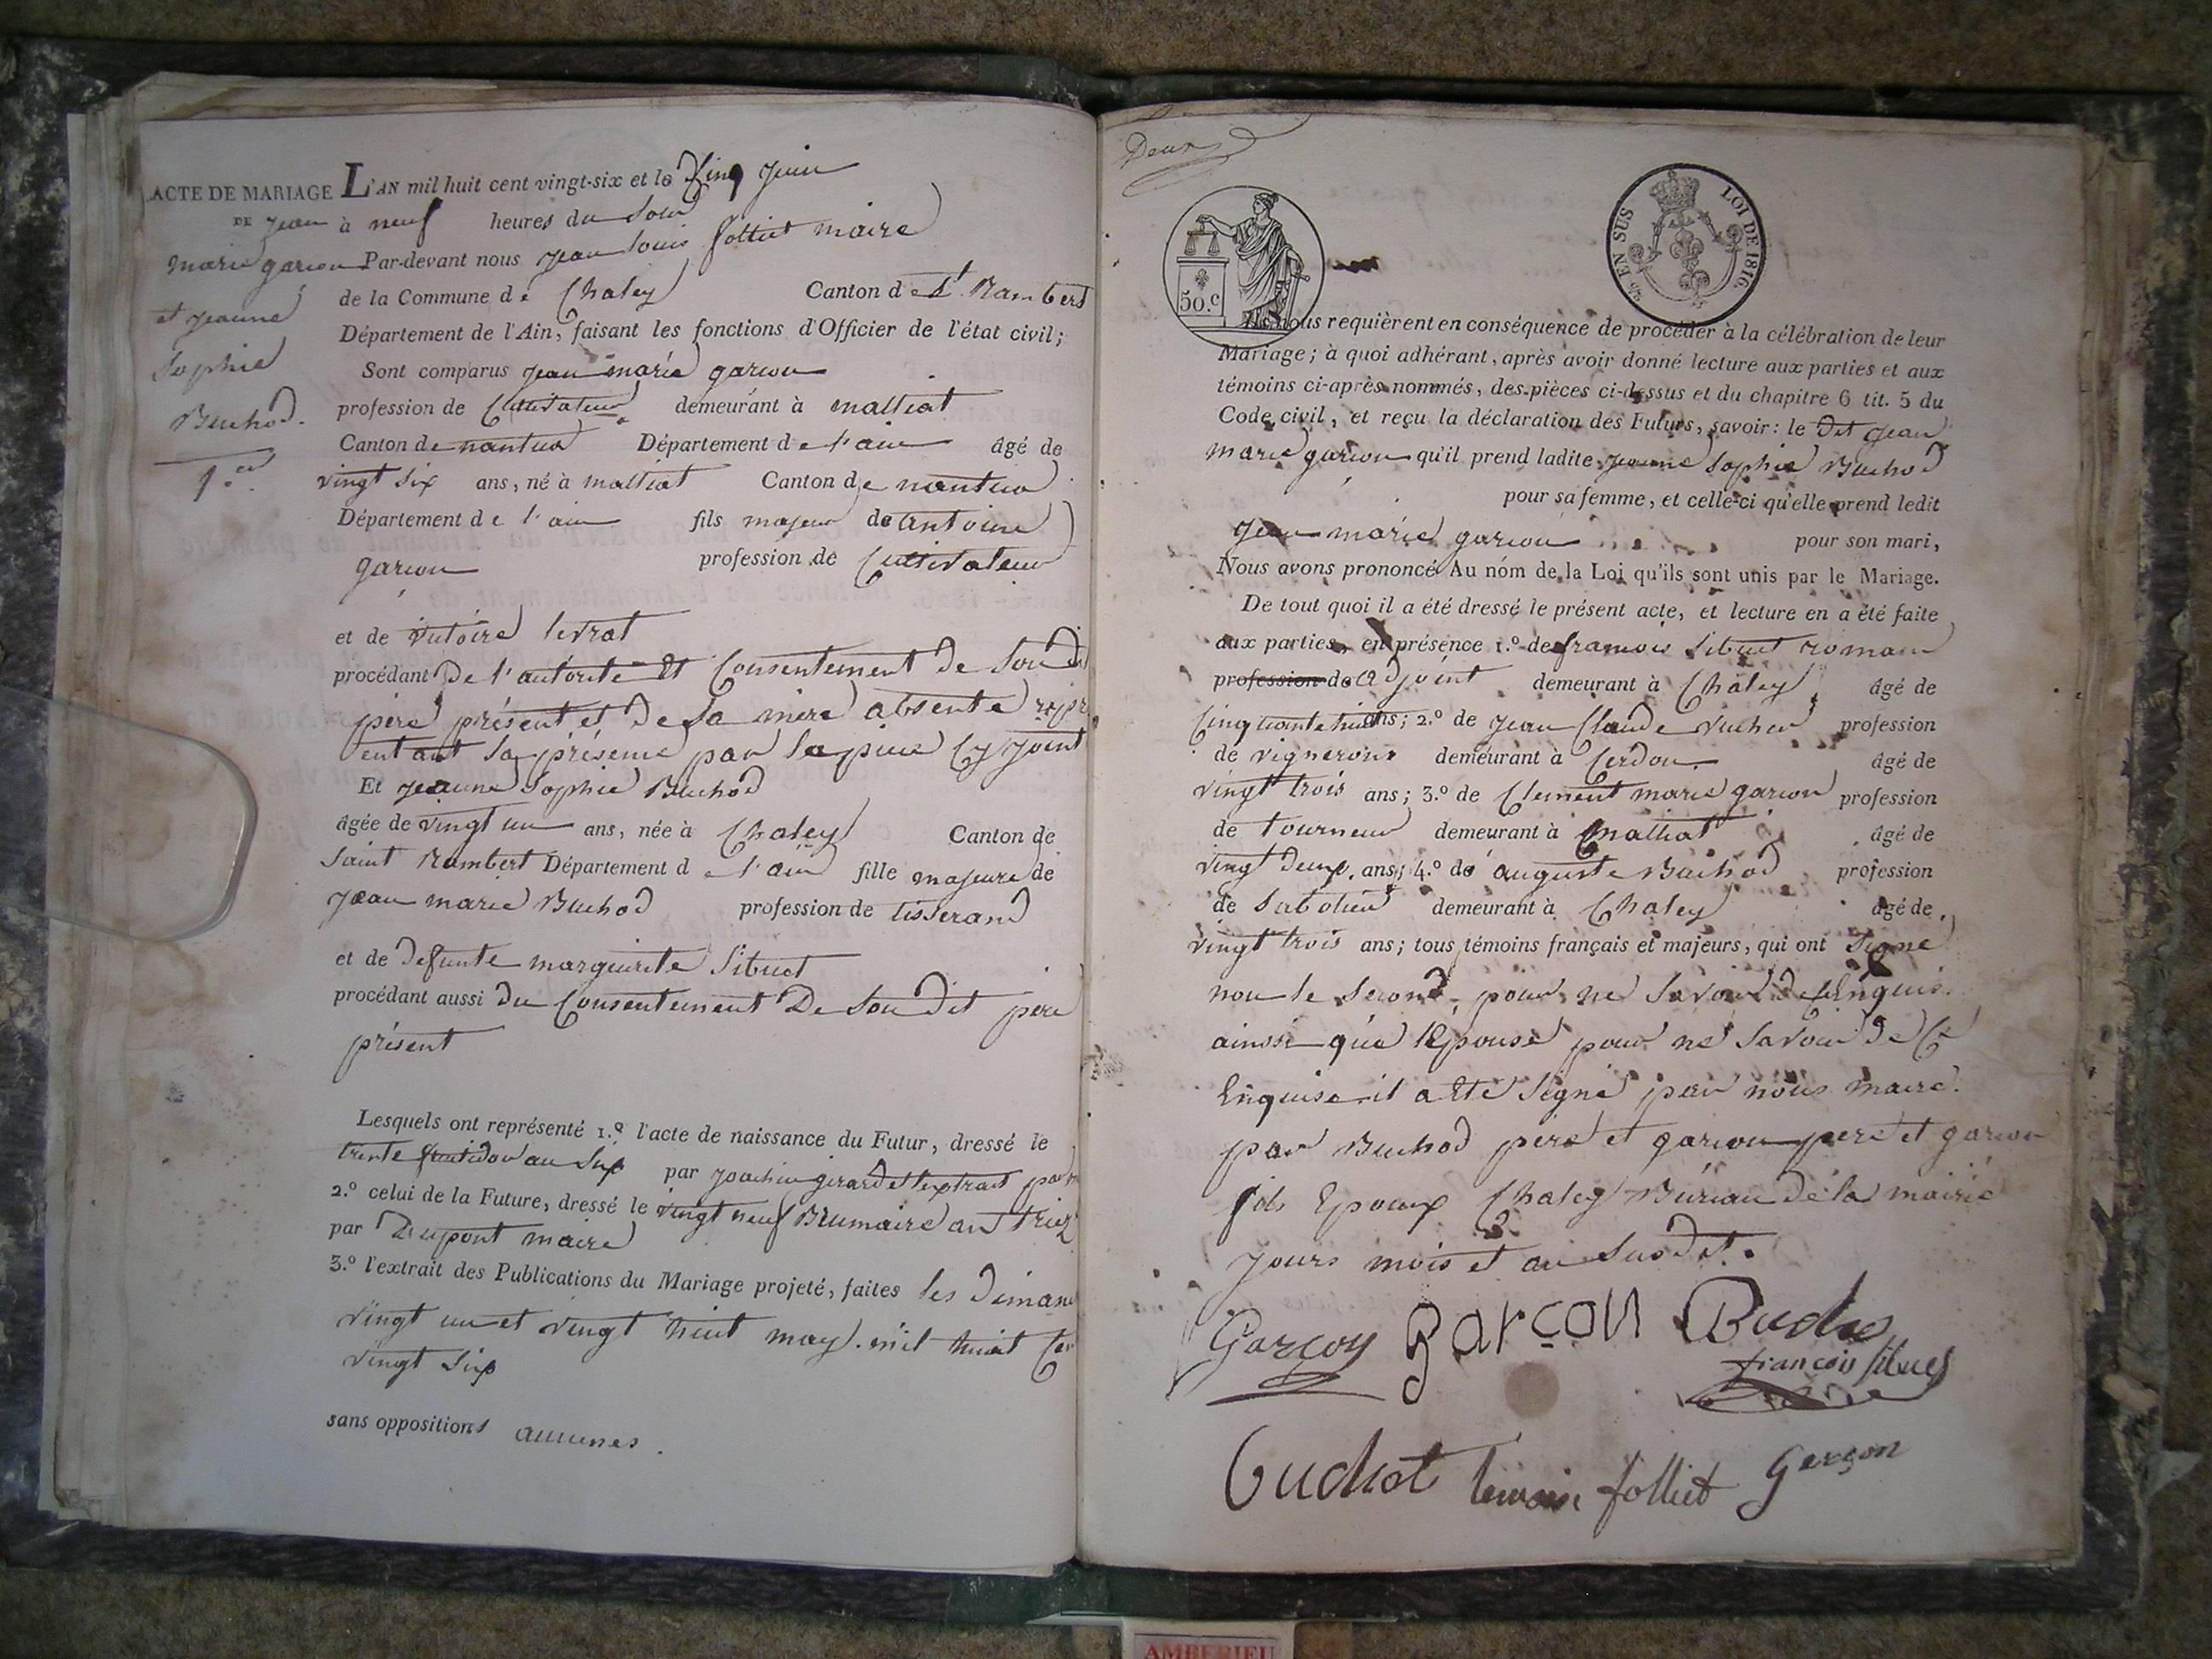 ACTE DE MARIAGE
DE Jean
marie garcon
et jeanne
Sophie
Buchod.
1.er
L'AN mil huit cent vingt-six et le Cinq juin
à neuf heures du Soir
Par-devant nous jean louis folliet maire
de la Commune de Chaley Canton de St. Rambert
Département de l'Ain, faisant les fonctions d'Officier de l'état civil;
Sont comparus jean marie garcon
profession de Cultivateur demeurant à malliat
Canton de nantua Département de l'ain âgé de
vingt six ans, né à malliat Canton de nantua
Département de l'ain fils majeur de antoine
garcon profession de Cultivateur
et de levrat
procédant De l'autorité Et Consentement de Son dit
père présent et de Sa mere absente
Sa présence par la piece Cy joint
Et jeanne Sophie Buchod
âgée de vingt un ans, née à Chaley Canton de
Saint Rambert Département de l'ain fille majeure de
jean marie Buchod profession de tisserand
et de defunte marguerite Sibuet
procédant aussi du Consentement De Son dit père
présent
Lesquels ont représenté 1.º l'acte de naissance du Futur, dressé le
trente au Six par joachin girard et lextrait par
2.º celui de la Future, dressé le vingt neuf Brumaire an
par Dupont maire
3.º l'extrait des Publications du Mariage projeté, faites les
vingt un et vingt huit may mil huit
vingt Six
sans oppositions aucunes.
Deux
50.c
EN SUS LOI DE 1816.
Ils nous requièrent en conséquence de procéder à la célébration de leur
Mariage; à quoi adhérant, après avoir donné lecture aux parties et aux
témoins ci-après nommés, des pièces ci-dessus et du chapitre 6 tit. 5 du
Code civil, et reçu la déclaration des Futurs, savoir: le dit jean
marie garcon qu'il prend ladite jeanne Sophie Buchod
pour sa femme, et celle-ci qu'elle prend ledit
jean marie garcon pour son mari,
Nous avons prononcé Au nom de la Loi qu'ils sont unis par le Mariage.
De tout quoi il a été dressé le présent acte, et lecture en a été faite
aux parties, en présence 1.º de francois Sibuet romain
profession de adjoint demeurant à Chaley âgé de
Cinquante huit ans; 2.º de jean Claude profession
de vigneron demeurant à Cerdon âgé de
vingt trois ans; 3.º de Clement marie garcon profession
de tourneur demeurant à malliat âgé de
vingt deux ans; 4.º de auguste Buchod profession
de Sabotier demeurant à Chaley âgé de
vingt trois ans; tous témoins français et majeurs, qui ont Signé
non le Second pour ne Savoir de Enquis
ainsi que lEpouse pour ne Savoir de Ce
Enquise il a Eté Signé par nous maire.
par Buchod pere et garcon pere et garcon
fils Epoux Chaley Bureau de la mairie
jours mois et an Susdit.
Garçon garçon Buchod
françois Sibuet
Buchot folliet Garçon